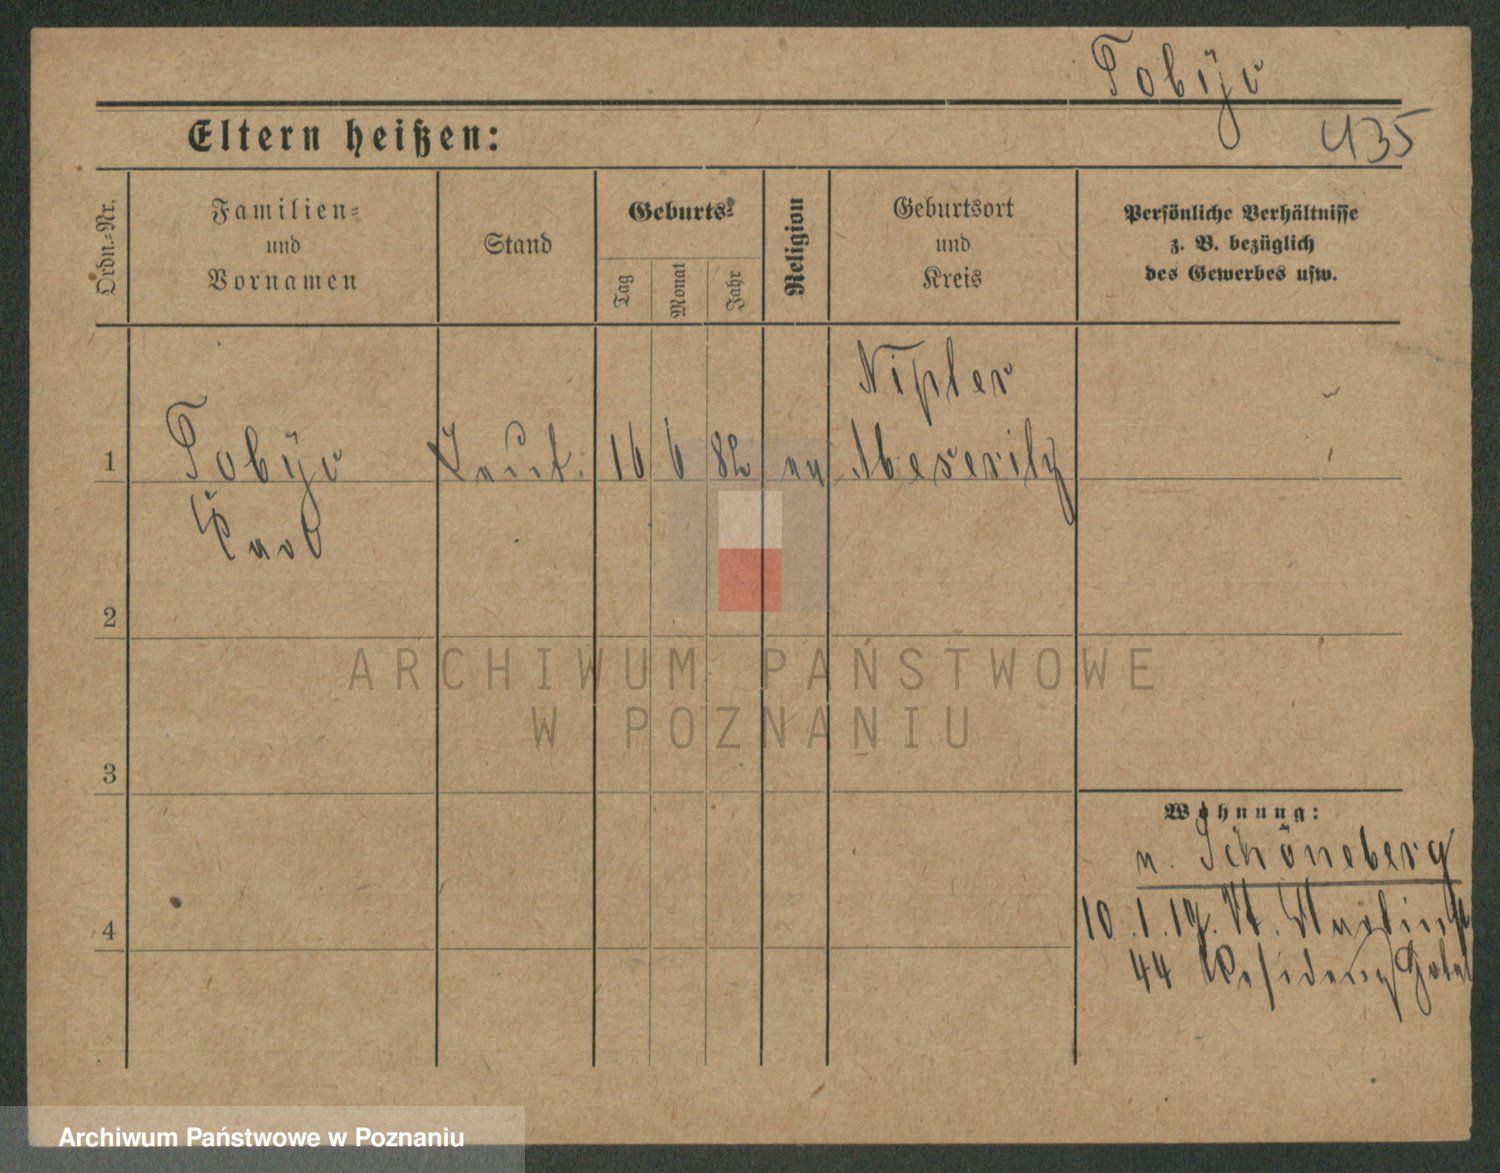 435
Eltern heißen:
Ordn.-Nr.
Familien-
und
Vornamen
Stand
Geburts-
Tag
Monat
Jahr
Religion
Geburtsort
und
Kreis
Persönliche Verhältnisse
z. B. bezüglich
des Gewerbes usw.
1
Leut. 16 6 82 ev Meseritz
2
3
4
Wohnung:
n. Schöneberg
10.1.17. St. Martinstr
44 Residenz Hotel
ARCHIWUM PAŃSTWOWE
W POZNANIU
Archiwum Państwowe w Poznaniu